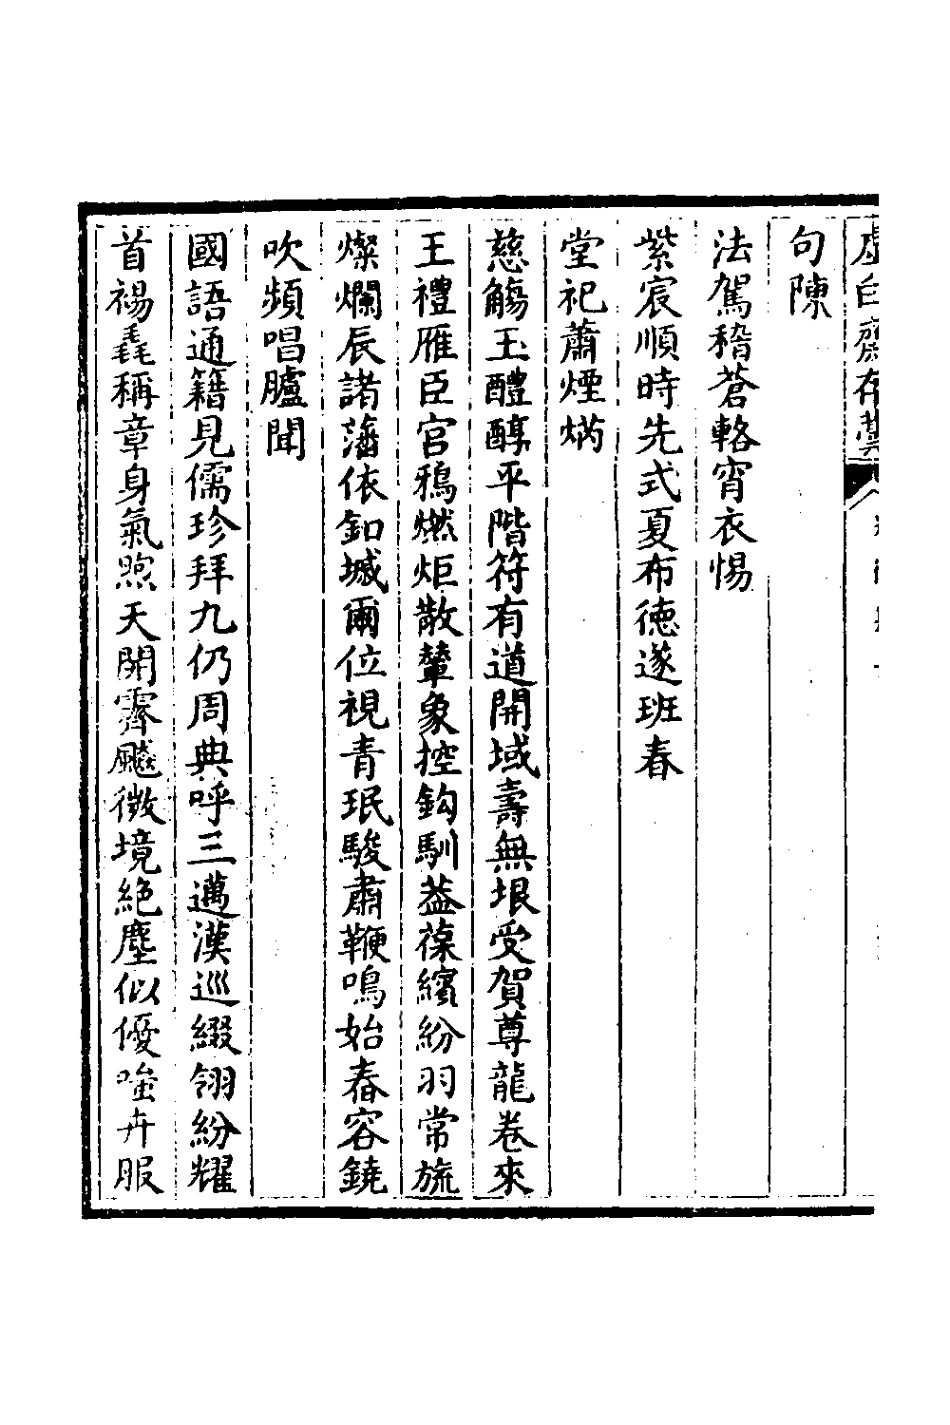 虛白齋存藁
句陳
法駕稽蒼輅宵衣惕
紫宸順時先式夏布德遂班春
堂祀蕭煙焫
慈觴玉醴醇平階符有道開域壽無垠受賀尊龍卷來
王禮雁臣宫鴉燃炬散輦象控鈎馴葢葆繽紛羽常旒
燦爛辰諸藩依釦墄爾位視青珉駿肅鞭鳴始舂容鐃
吹頻唱臚聞
國語通籍見儒珍拜九仍周典呼三邁漢巡綴翎紛耀
首裼毳稱章身氣煦天開霽飈微境絶塵似優嗤卉服